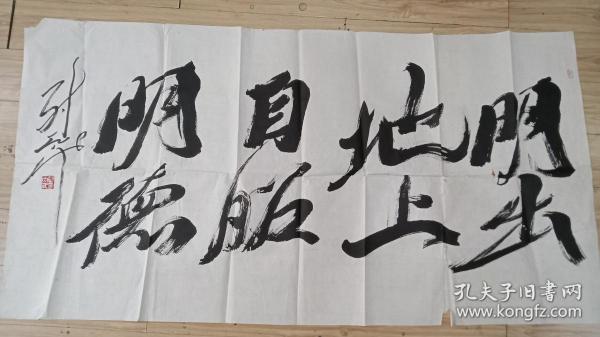 明出
地上
自昭
明德
孔夫子旧书网
www.kongfz.com